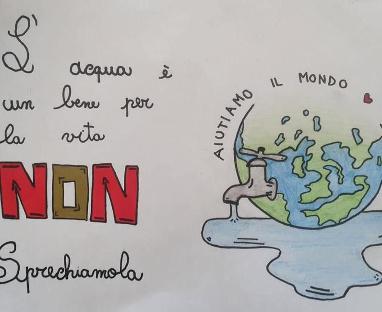 L'acqua è
un bene per
la vita
NON
Sprechiamola
AIUTIAMO IL MONDO